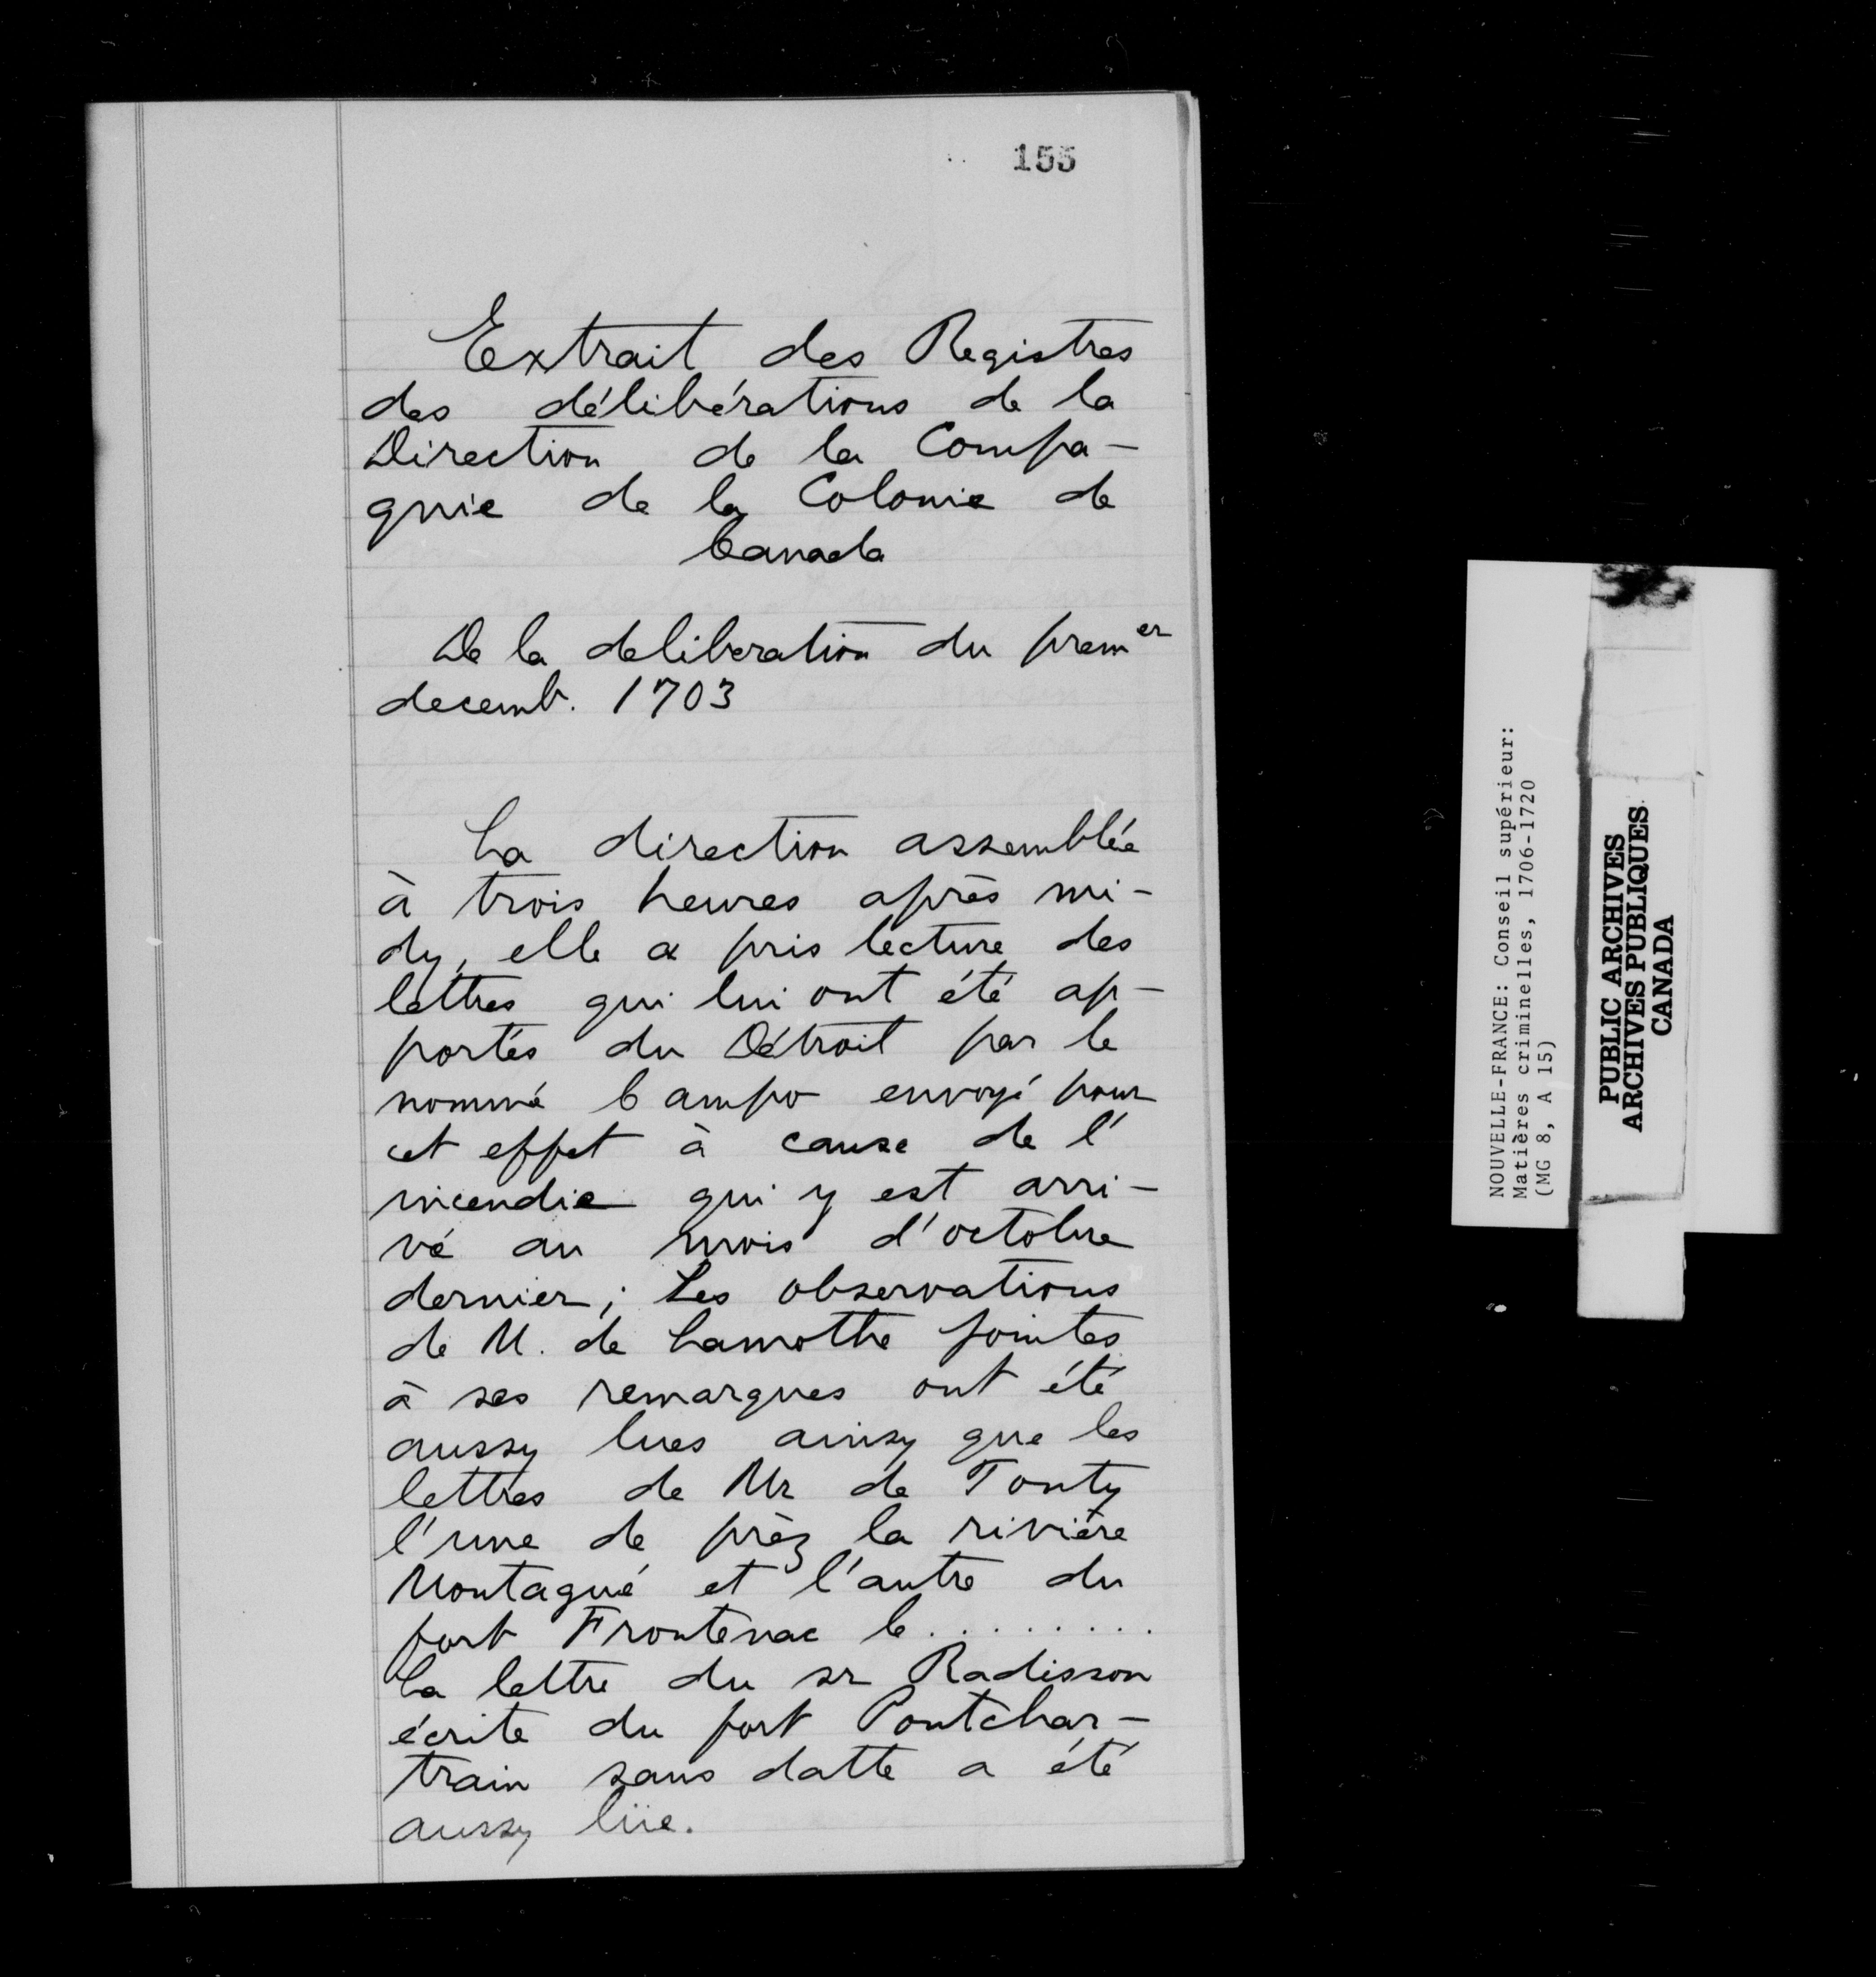 155
Extrait des Registres
des délibérations de la
Direction de la Compa-
gnie de la Colonie de
Canada
De la deliberation du premer
decemb. 1703
La direction assemblée
à trois heures après mi-
dy, elle a pris lecture des
lettres qui lui ont été ap-
portés du Détroit par le
nommé Campo envoyé pour
cet effet à cause de l'
incendie qui y est arri-
vé au mois d'octobre
dernier; Les observations
de M. de Lamothe jointes
à ses remarques ont été
aussy lues ainsy que les
lettres de Mr de Tonty
l'une de prèz la rivière
Montagué et l'autre du
fort Frontenac le.........
La lettre du sr Radisson
écrite du fort Pontchar-
train sans datte a été
aussy lüe.
NOUVELLE-FRANCE: Conseil supérieur:
Matières criminelles, 1706-1720
(MG 8, A 15)
PUBLIC ARCHIVES
ARCHIVES PUBLIQUES
CANADA